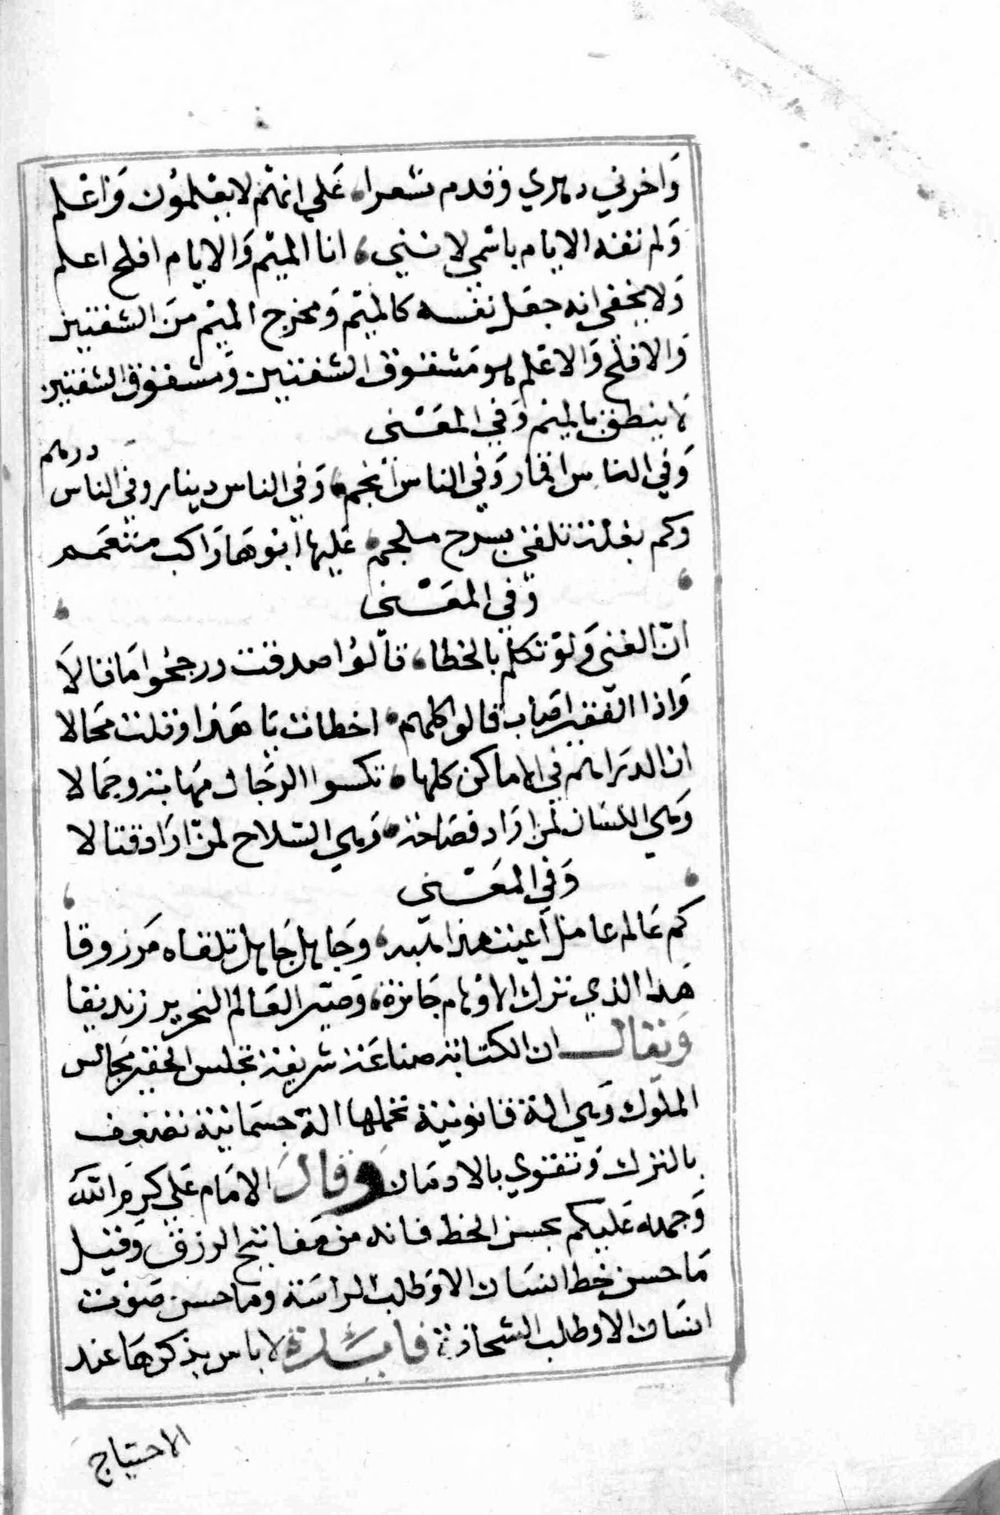 وَاخرني دهري وقدم معشرا، عَلي انهم لا يعْلمُون وَاعْلم
وَلم تفه الايام باسمي لانني، انا الميْم وَالايام افلح اعلم
وَلا يخفي انه جعَل نفسه كالميْم وَمخرج الميْم من الشفتين
وَالافلح وَالاعْلم هو مَشقوق الشفتين وَمشقوق الشفتين
لا ينطق بالميم وَفي المعَنى
وَفي الناس اقمار وَفي الناس انجم، وَفي الناس دينار وفي الناس درهم
وكم بغلة تلقى بسرج ملجم، عَليها ابوهَا رَاكب متعَمم
وَفي المعَنى
انّ الغني وَلوْ تكلم بالخطا، قالوُا صدقت ورجحُوا مَا قالا
وَاذا الفقير اصَاب قالوا كلهم، اخطات يا هَذا وقلت محَالا
ان الدرَاهم في الاماكن كلها، تكسوا الرجَال مهَابة وجمَالا
وَهي اللسَان لمن ارَاد فصَاحة، وَهي السّلاح لمنْ ارَاد قتالا
وَفي المعَنى
كم عَالم عامل أعيت مذاهبه، وجَاهل جَاهل تلقاه مَرزوقا
هَذا الذي ترك الاوْهام حَائرة، وَصيّر العَالم النحرير زنديقا
وَيقال ان الكتابة صناعَة شريفة تجلس الحقير مجَالس
الملوُك وَهي الة قانونية تحملها الة جسمَانية تضعف
بالترك وَتقوي بالادمَان وَقال الامَام عَلي كرم الله
وَجهه عَليكم بحسن الخط فانه من مفاتيح الرزق وَقيل
مَا حسن خط انسَان الا وَطلب الراسَة وما حسن صَوْت
انسَان الا وطلب الشحاذة فائدة لا باس بذكرهَا عند
الاحتياج